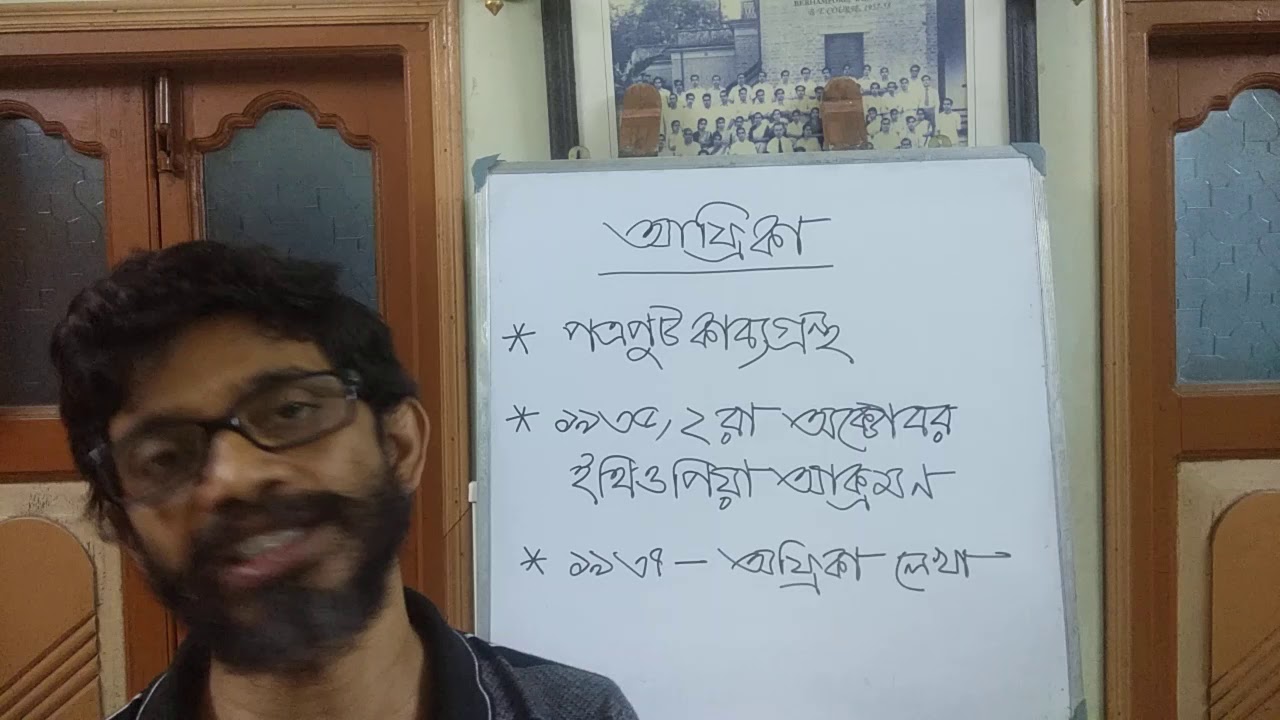 BERHAMPORE
& T. COURSE, 1957-58
আফ্রিকা
* পত্রপুট কাব্যগ্রন্থ
* ১৯৩৫, ২রা অক্টোবর
ইথিওপিয়া আক্রমন
* ১৯৩৭ — অফ্রিকা লেখা